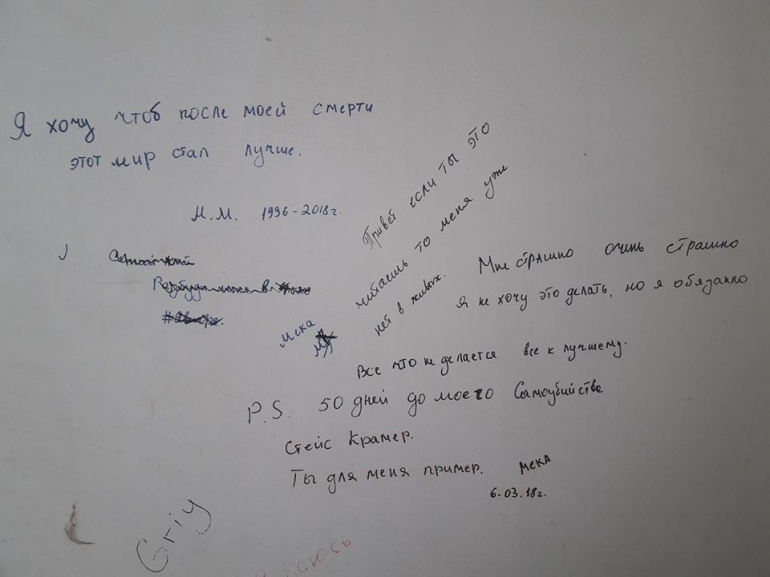 Я хочу чтоб после моей смерти
этот мир стал лучше.
М.М. 1996-2018г.
Привет если ты это
читаешь то меня уже
нет в живых. Мне страшно очинь страшно
Я не хочу это делать, но я обязанно
Все что не делается все к лучшему.
мека
P.S. 50 дней до моего Самоубийства
Стейс Крамер.
Ты для меня пример. мека
6.03.18г.
Griy